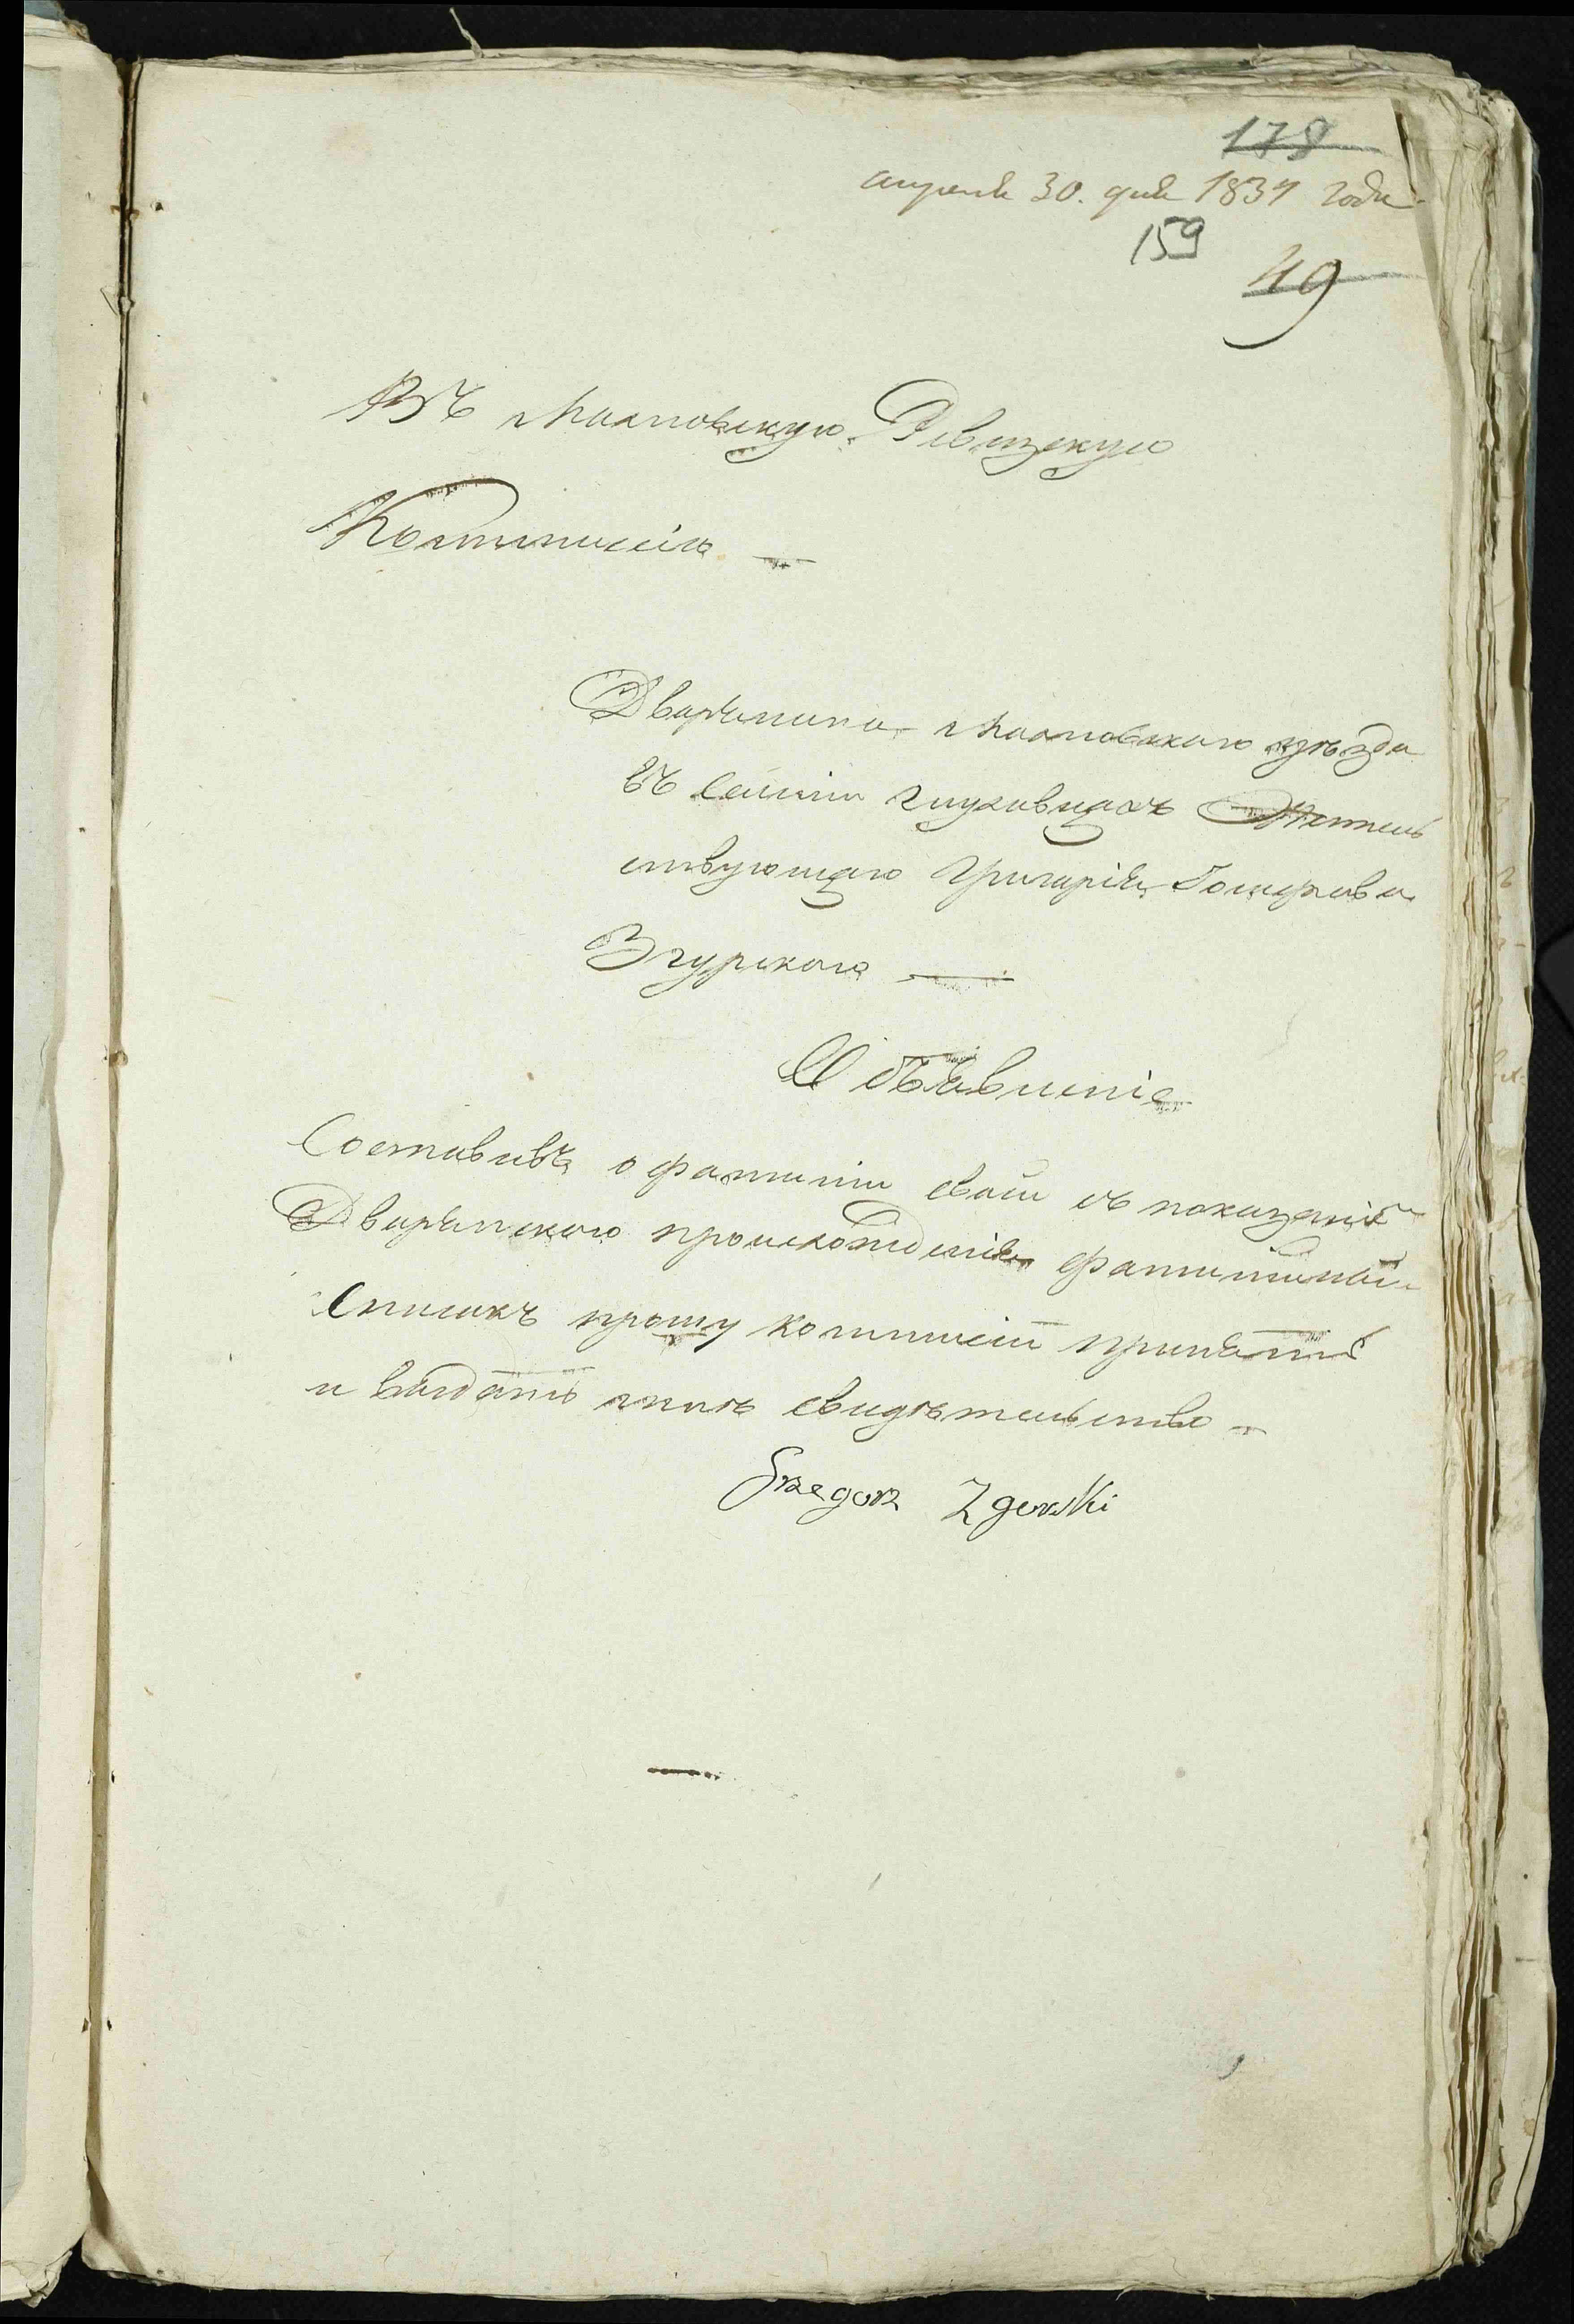 178
апреля 30. дня 1834 года
159
49
Въ Махновскую Ревизскую
Коммисію
Дворянина Махновскаго уѣзда
въ Селѣніи Глуховцахъ Жетель
ствующаго Григорія
Згурского
Объявленіе
Составивъ о фамиліи своей съ показаніемъ
Дворянского происхожденія фамилійный
Списокъ прошу коммисіи принять
и выдать мнѣ свидѣтельство
Grzegorz Zgurski